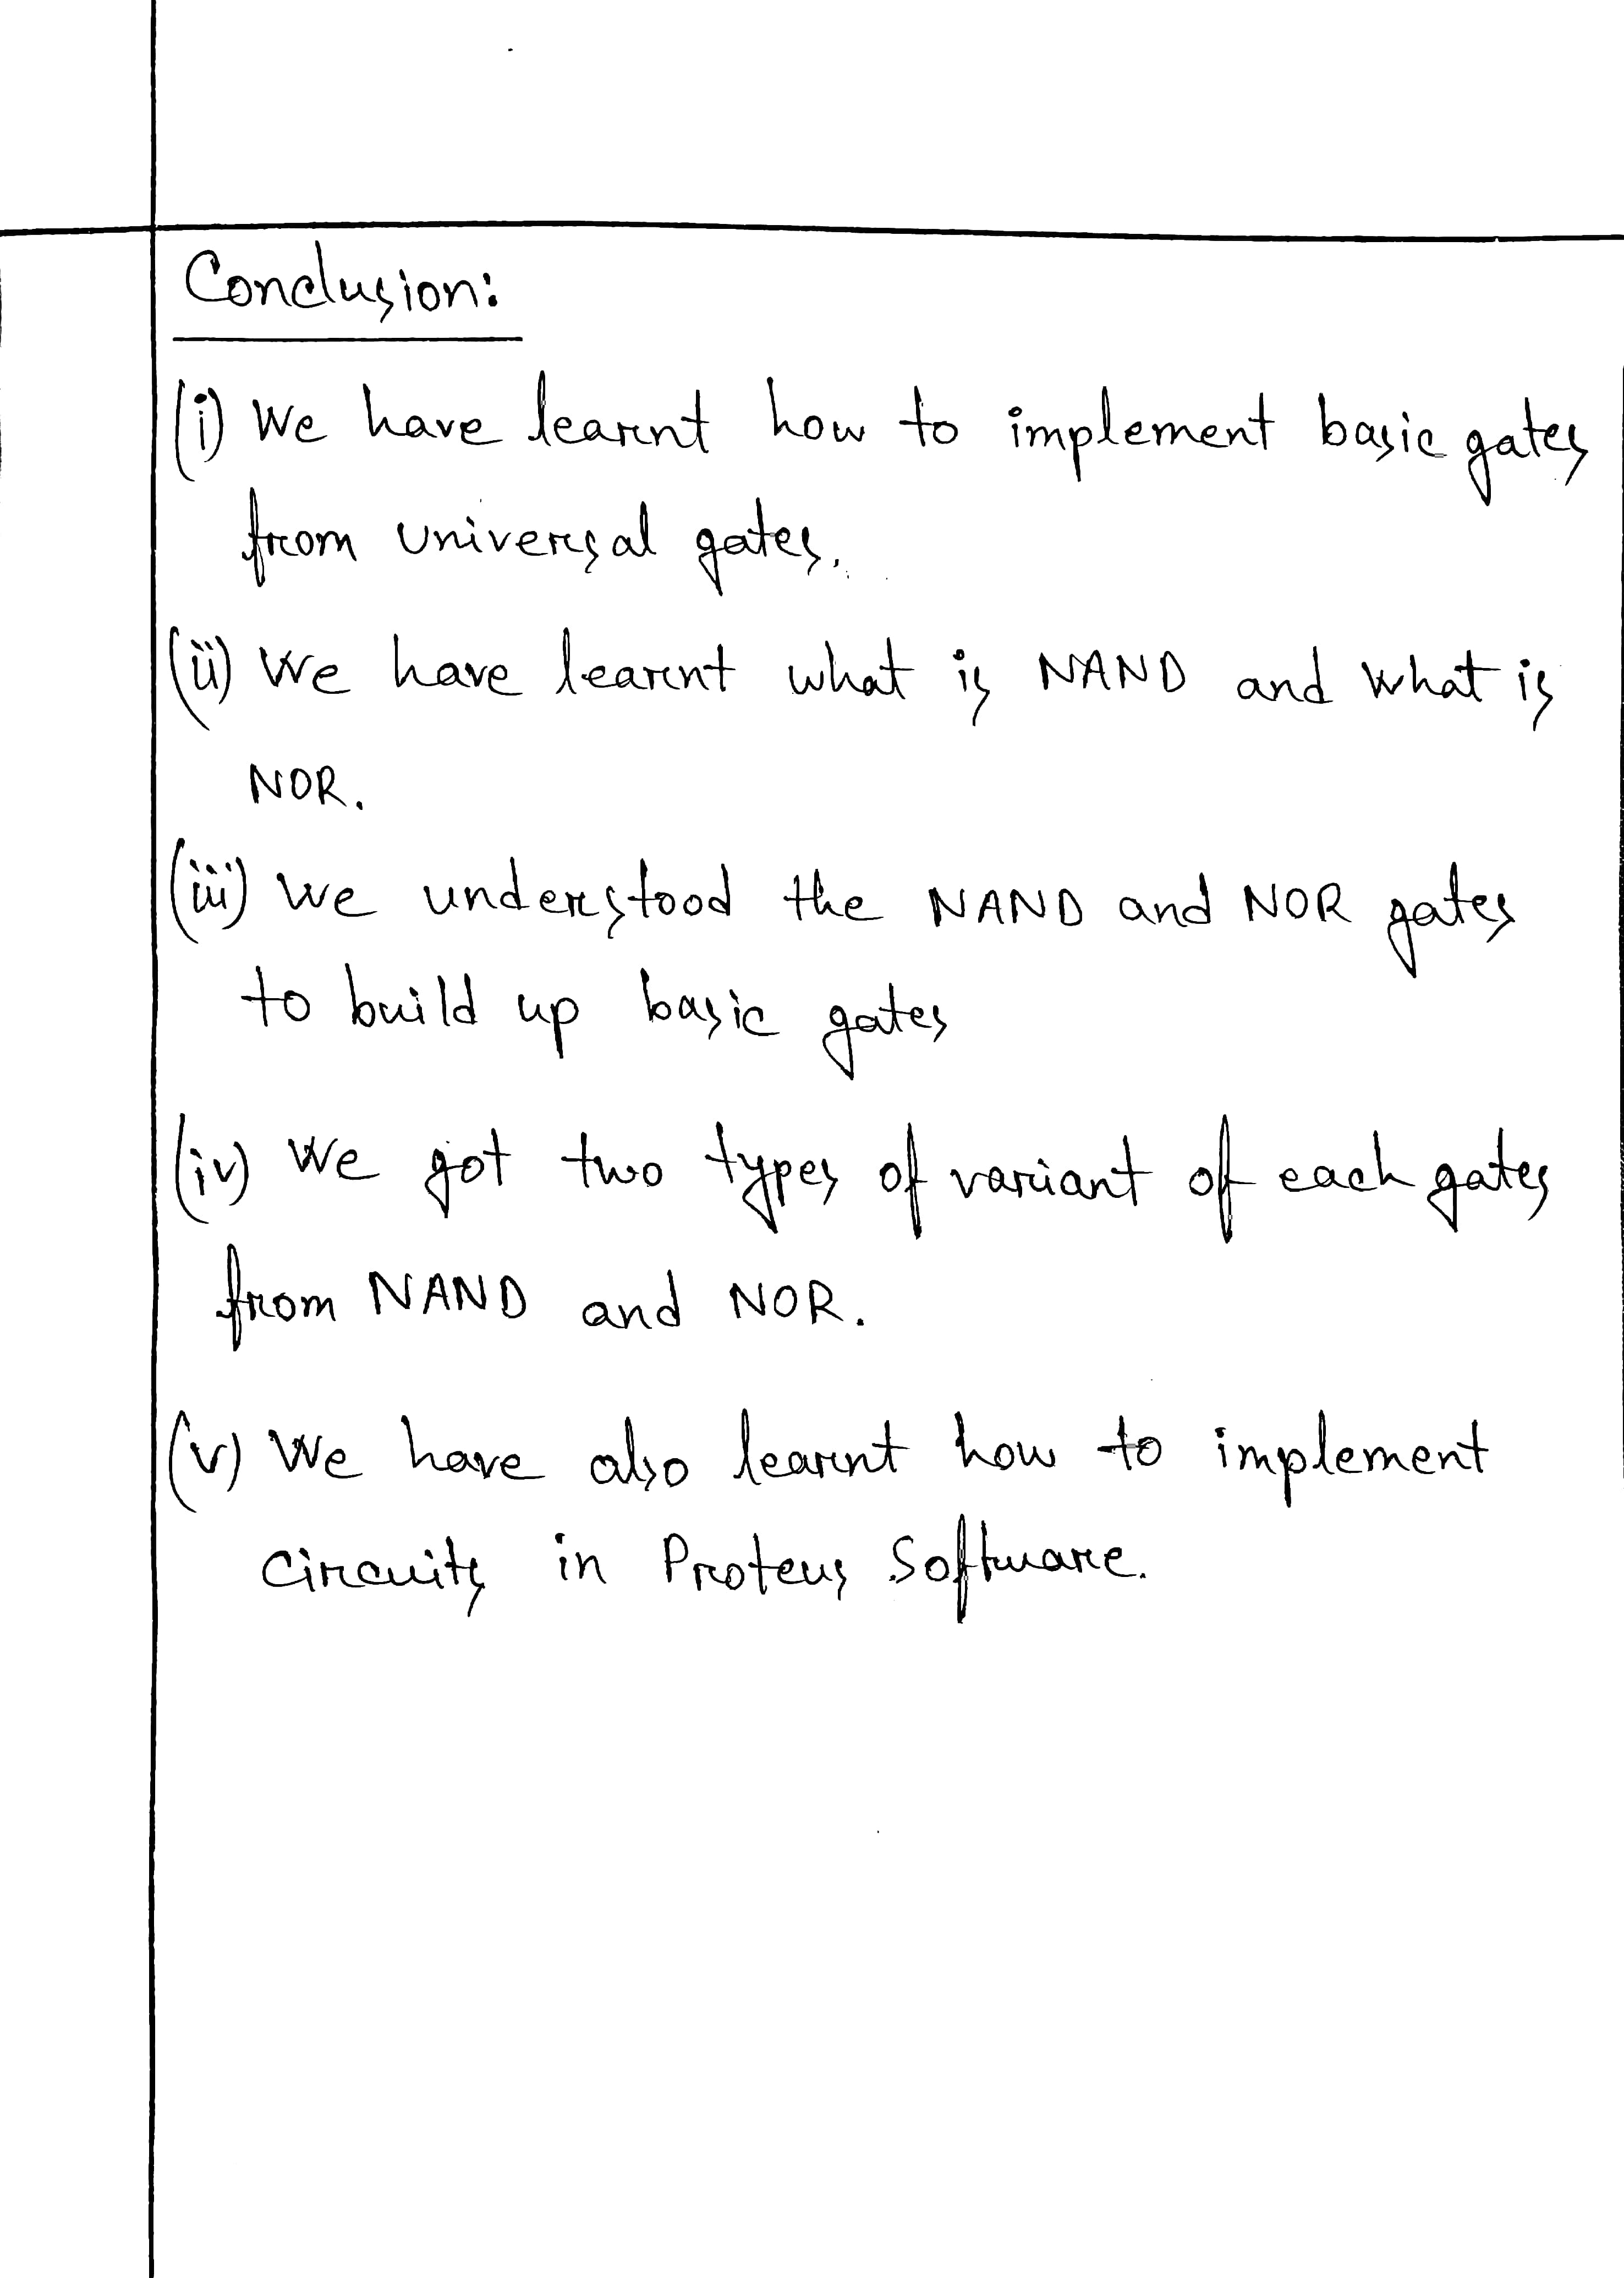 Conclusion:
(i) We have learnt how to implement basic gates
from universal gates.
(ii) We have learnt what is NAND and what is
NOR.
(iii) We understood the NAND and NOR gates
to build up basic gates
(iv) We got two types of variant of each gates
from NAND and NOR.
(v) We have also learnt how to implement
circuits in Proteus Software.